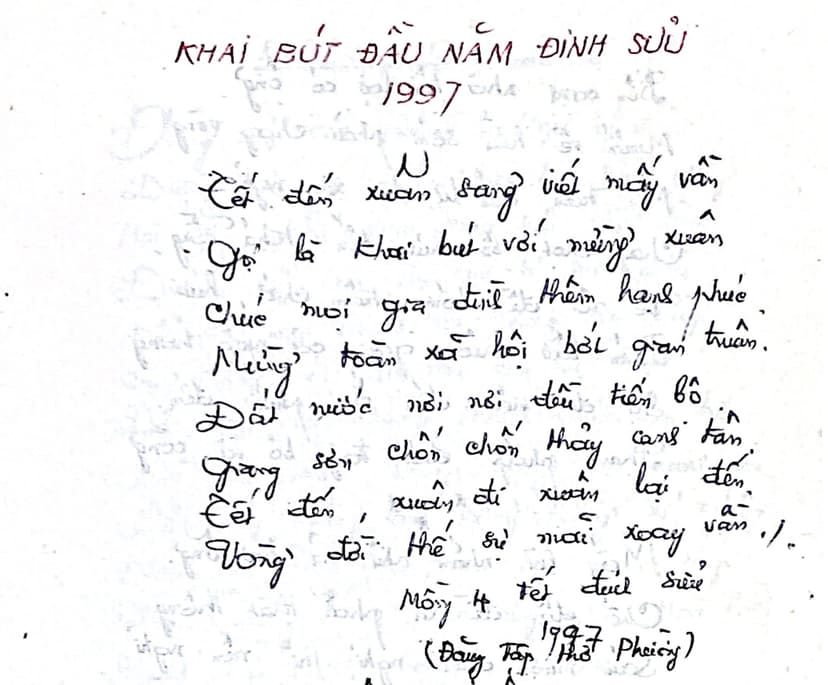 KHAI BÚT ĐẦU NĂM ĐINH SỬU
1997
Tết đến xuân sang viết mấy vần
Gọi là khai bút với mừng xuân
Chúc mọi gia đình thêm hạnh phúc
Mừng toàn xã hội bớt gian truân.
Đất nước nơi nơi đều tiến bộ
Giang sơn chốn chốn thảy canh tân
Tết đến, xuân đi xuân lại đến
Vòng đời thế sự mãi xoay vần ./.
Mồng 4 tết đinh sửu
1997
(Đăng Tập Thơ Phường)